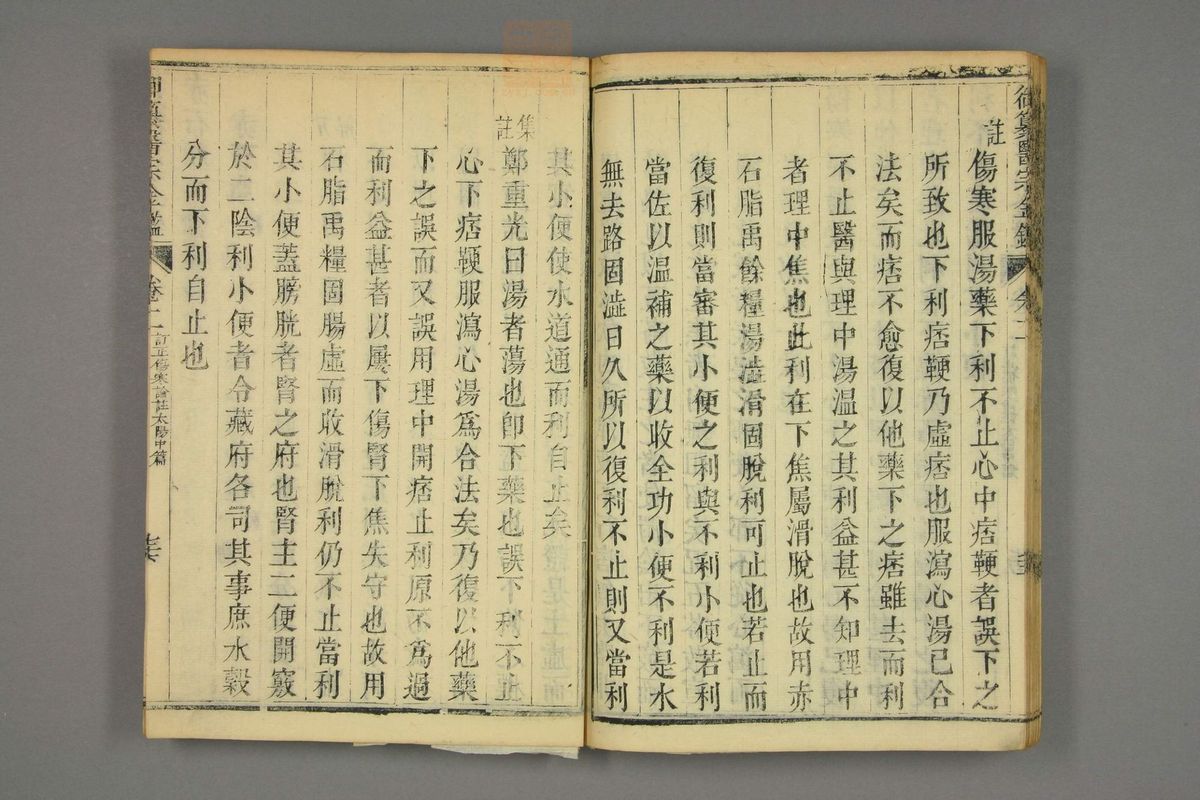 御纂醫宗金鑑 卷二
註 傷寒服湯藥下利不止心中痞鞕者誤下之
所致也下利痞鞕乃虛痞也服瀉心湯已合
法矣而痞不愈復以他藥下之痞雖去而利
不止醫與理中湯溫之其利益甚不知理中
者理中焦也此利在下焦屬滑脫也故用赤
石脂禹餘糧湯澁滑固脫利可止也若止而
復利則當審其小便之利與不利小便若利
當佐以溫補之藥以收全功小便不利是水
無去路固澁日久所以復利不止則又當利
其小便使水道通而利自止矣
集註 鄭重光曰湯者蕩也卽下藥也誤下利不止
心下痞鞕服瀉心湯爲合法矣乃復以他藥
下之誤而又誤用理中開痞止利原不爲過
而利益甚者以屢下傷腎下焦失守也故用
石脂禹糧固腸虛而收滑脫利仍不止當利
其小便蓋膀胱者腎之府也腎主二便開竅
於二陰利小便者令藏府各司其事庶水穀
分而下利自止也
御纂醫宗金鑑 卷二 訂正傷寒論註太陽中篇